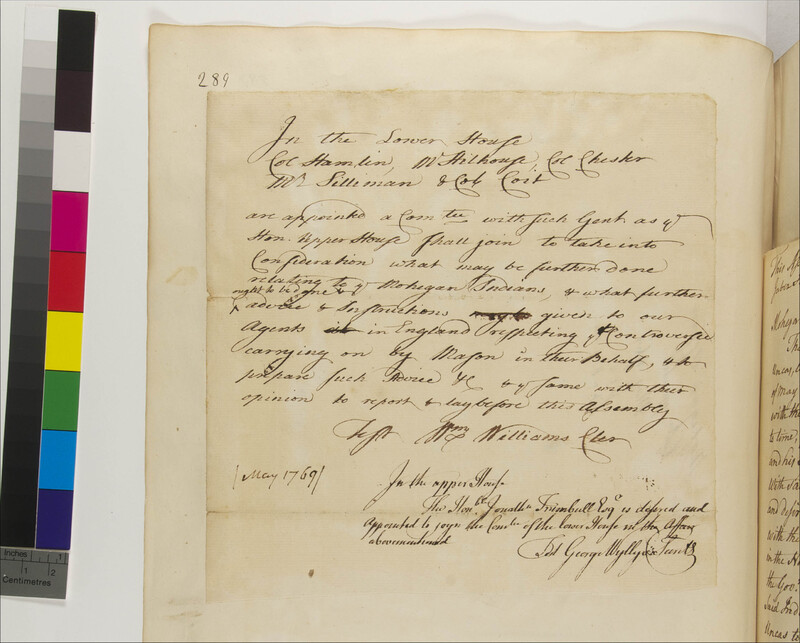 289
In the Lower House
Col Hamlin, Mr Hilhouse, Col Chester
Mr Silliman & Col Coit
are appointed a Comtee with such Gent. as ye
Hon. Upper House shall join to take into
Consideration what may be further done
relating to ye Mohegan Indians, & what further
advice & Instructions given to our
Agents in England respecting ye Controversie
carrying on by Mason in their Behalf, & to
prepare such Advice &c & ye same with their
opinion to report & lay before this Assembly
Test Wm Williams Cler
[May 1769]
In the upper House
The Honble Jonathn Trumbull Esqr is desired and
Appointed to joyn the Comtee of the lower House in the Affair
abovementioned
Test George Wyllys Secr
Inches 1
1 2
Centimetres
Mohegan
Uncas
of May
with the
to time,
and his
with
and desire
with the
in the
the Gov
said Ind
Uncas to